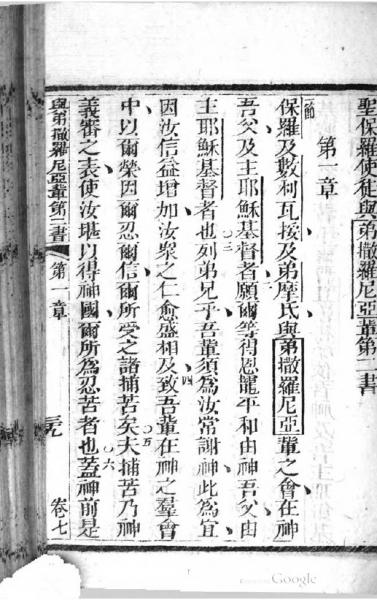 聖保羅使徒與弟撒羅尼亞輩第二書
第一章
節
保羅及數柯瓦接及弟摩氏與弟撒羅尼亞輩之會在神
吾父及主耶穌基督者願爾等得恩寵平和由神吾父由
主耶穌基督者也列弟兄乎吾輩須為汝常謝神此為宜
因汝信益增加汝衆之仁愈盛相及致吾輩在神之羣會
中以爾榮因爾忍爾信爾所受之諸捕苦矣夫捕苦乃神
義審之表使汝堪以得神國爾所為忍苦者也蓋神前是
二
三
四
五
六
與弟撒羅尼亞輩第二書
第一章
卷七
Google